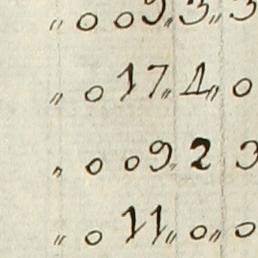 〃 0 09〃 3〃 3
〃 0 17〃 4〃 0
〃 0 09〃 2 3
〃 0 11〃 0〃 0